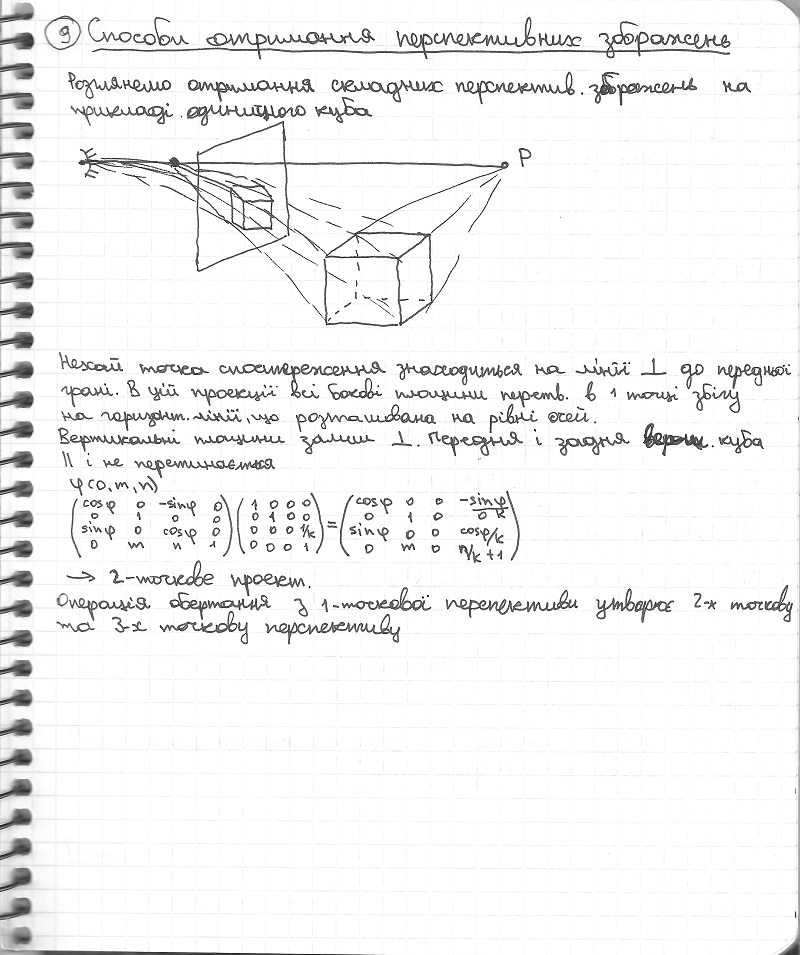 9 Способи отримання перспективних зображень
Розглянемо отримання складних перспектив. зображень на
прикладі одиничного куба
P
Нехай точка спостереження знаходиться на лінії ⊥ до передньої
грані. В цій проекції всі бокові площини перетв. в 1 точці збігу
на горизонт. лінії, що розташована на рівні очей.
Вертикальні площини залиш ⊥. Передня і задня куба
|| і не перетинається
φ(0,m,n)
(cosφ 0 -sinφ 0) (1 0 0 0) = (cosφ 0 0 -sinφ/k)
(0 1 0 0) (0 1 0 0) (0 1 0 0)
(sinφ 0 cosφ 0) (0 0 0 1/k) (sinφ 0 0 cosφ/k)
(0 m n 1) (0 0 0 1) (0 m 0 n/k +1)
→ 2-точкове проект.
Операція обертання з 1-точкової перспективи утворює 2-х точкову
та 3-х точкову перспективу